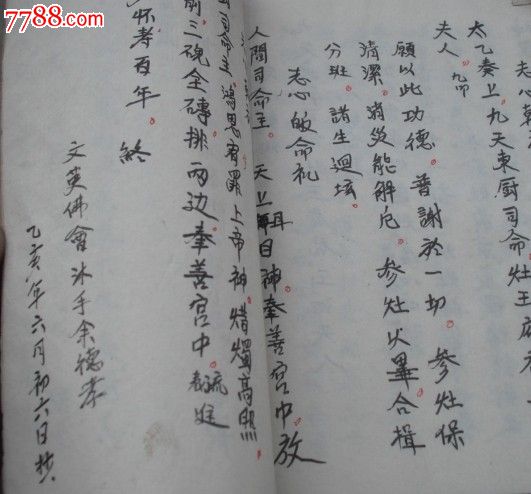 7788.com
太乙奏上九天東厨司命灶王府
夫人 九叩
願以此功德 普謝於一切 參灶保
清潔 消災能解厄 參灶火畢合揖
分班 諸生迴壇
志心皈命礼
人間司命主 天上耳目神奉善宫中放
前三碗全磚排両边奉善宫中
怀孝百年 終
文英佛會沐手余德孝
乙亥年六月初六日抄